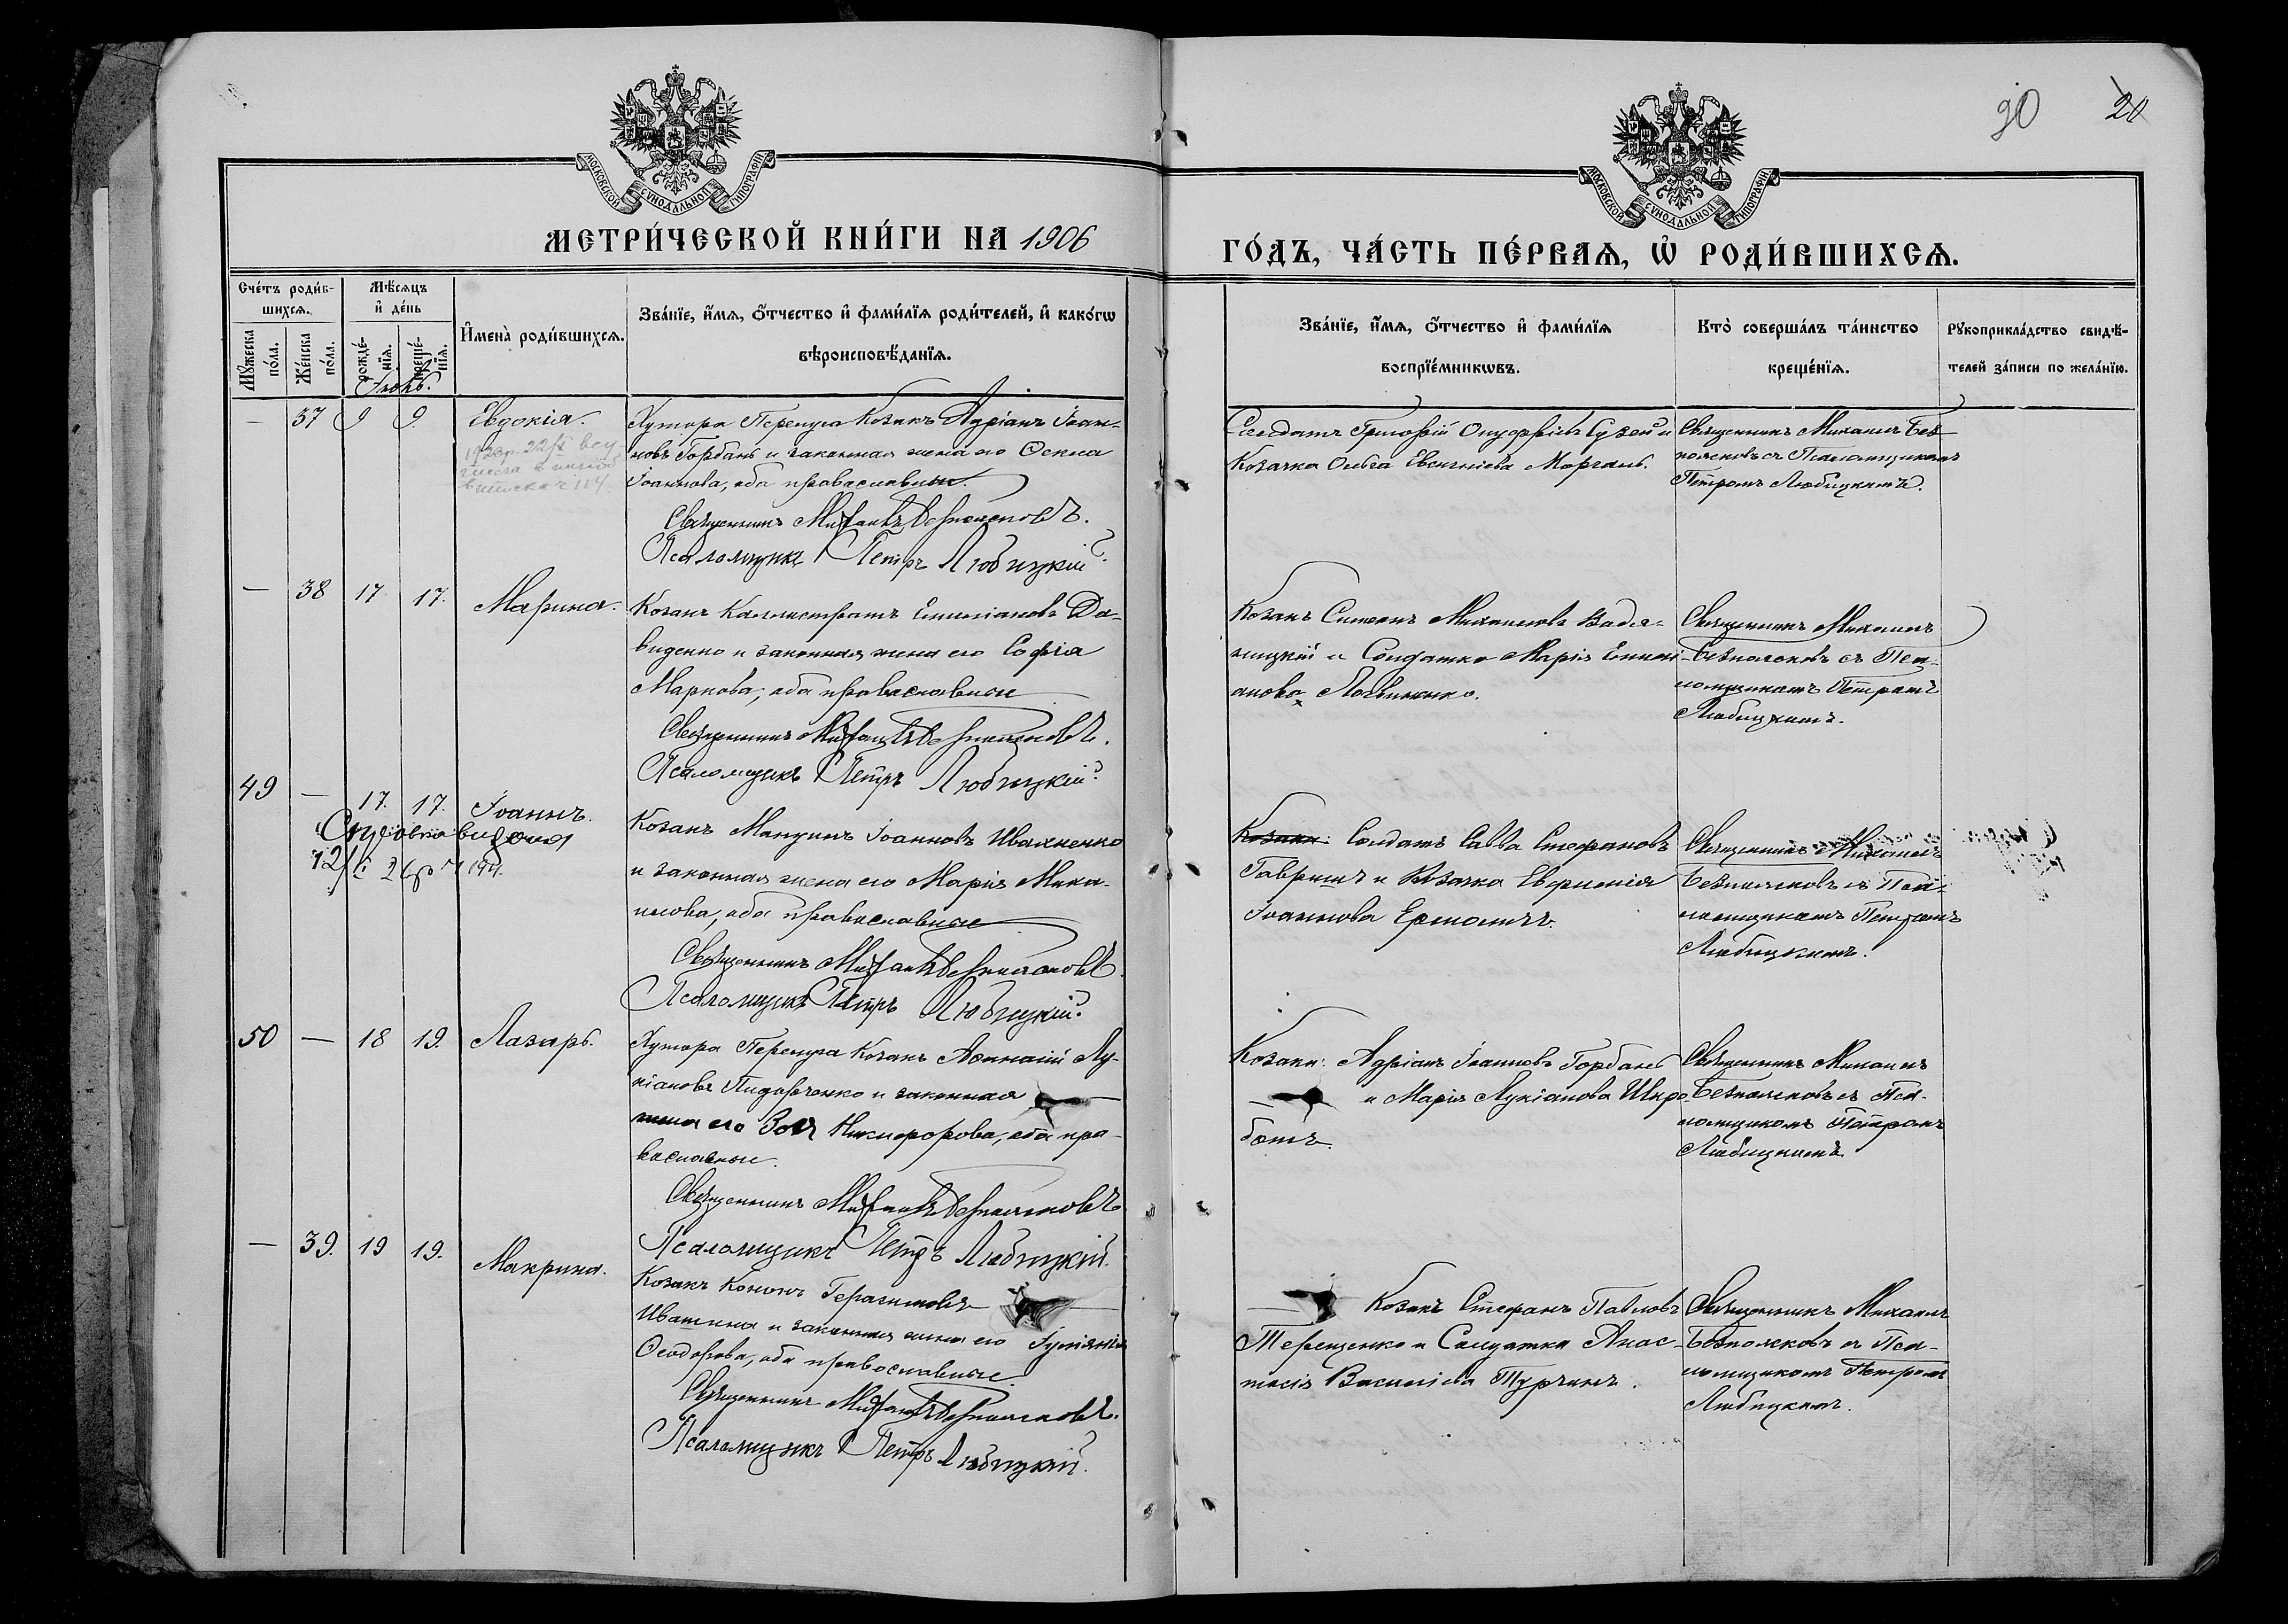 20 20
МОСКОВСКОЙ СѴНОДАЛЬНОЙ ТИПОГРАФІИ
МОСКОВСКОЙ СѴНОДАЛЬНОЙ ТИПОГРАФІИ
МЕТРИ́ЧЕСКОЙ КНИ́ГИ НА 1906
ГО́ДЪ, ЧА́СТЬ ПЕ́РВАѦ, Ѡ РОДИ́ВШИХСѦ.
Сче́тъ роди́в-
шихсѧ.
Мꙋ́жеска по́ла.
Же́нска по́ла.
Мѣ́сѧцъ
и де́нь
рожде́-
нїѧ.
креще́-
нїѧ.
И҆мена̀ роди́вшихсѧ.
Зва́нїе, и҆́мѧ, ѻ҆́тчество и҆ фами́лїѧ роди́телей, и҆ како́гѡ
вѣроисповѣ́данїѧ.
Зва́нїе, и҆́мѧ, ѻ҆́тчество и҆ фами́лїѧ
воспрїе́мникѡвъ.
Кто̀ соверша́лъ та́инство
креще́нїѧ.
Рꙋкоприкла́дство свидѣ́-
телей за́писи по жела́нїю.
— 37 9 9. Евдокія.
Хутора Перенуга Козакъ Адріанъ Іоан-
новъ Горбань и законная жена его
Іоаннова, оба православные.
Священникъ Михаилъ Безпоясковъ.
Псаломщикъ Петръ Любицкій.
Солдатъ Григорій и
Козачка Ольга Евгеніева
Священникъ Михаилъ Без-
поясковъ съ Псаломщикомъ
Петромъ Любицкимъ.
— 38 17 17. Марина.
Козакъ Каллистратъ Емиліановъ Да-
виденко и законная жена его Софія
Маркова, оба православные
Священникъ Михаилъ Безпоясковъ.
Псаломщикъ Петръ Любицкій.
Козакъ Симеонъ Михаиловъ
и Солдатка Марія Емили-
анова
Священникъ Михаилъ
Безпоясковъ съ Пса-
ломщикомъ Петромъ
Любицкимъ.
49 — 17. 17. Іоаннъ.
Козакъ Іоанновъ Ивахненко
и законная жена его Марія Миха-
илова, оба православные
Священникъ Михаилъ Безпоясковъ.
Псаломщикъ Петръ Любицкій.
Козаки Солдатъ Савва Стефановъ
Гавришъ и Козачка Евфимія
Іоаннова
Священникъ Михаилъ
Безпоясковъ съ Пса-
ломщикомъ Петромъ
Любицкимъ.
50 — 18 19. Лазарь.
Хутора Перенуга Козакъ Аѳанасій Лу-
кіановъ и законная
жена его Зоя Никифорова, оба пра-
вославные.
Священникъ Михаилъ Безпоясковъ
Псаломщикъ Петръ Любицкій.
Козаки: Адріанъ Іоанновъ Горбань
и Марія Лукіанова Широ-
ботъ
Священникъ Михаилъ
Безпоясковъ съ Пса-
ломщикомъ Петромъ
Любицкимъ
— 39. 19 19. Макрина.
Козакъ Кононъ Герасимовъ
и законная жена его Іуліанія
Ѳеодорова, оба православные
Священникъ Михаилъ Безпоясковъ.
Псаломщикъ Петръ Любицкій.
Козакъ Стефанъ Павловъ
Терещенко и Солдатка Анас-
тасія Василіева Турчинъ.
Священникъ Михаилъ
Безпоясковъ съ Пса-
ломщикомъ Петромъ
Любицкимъ.